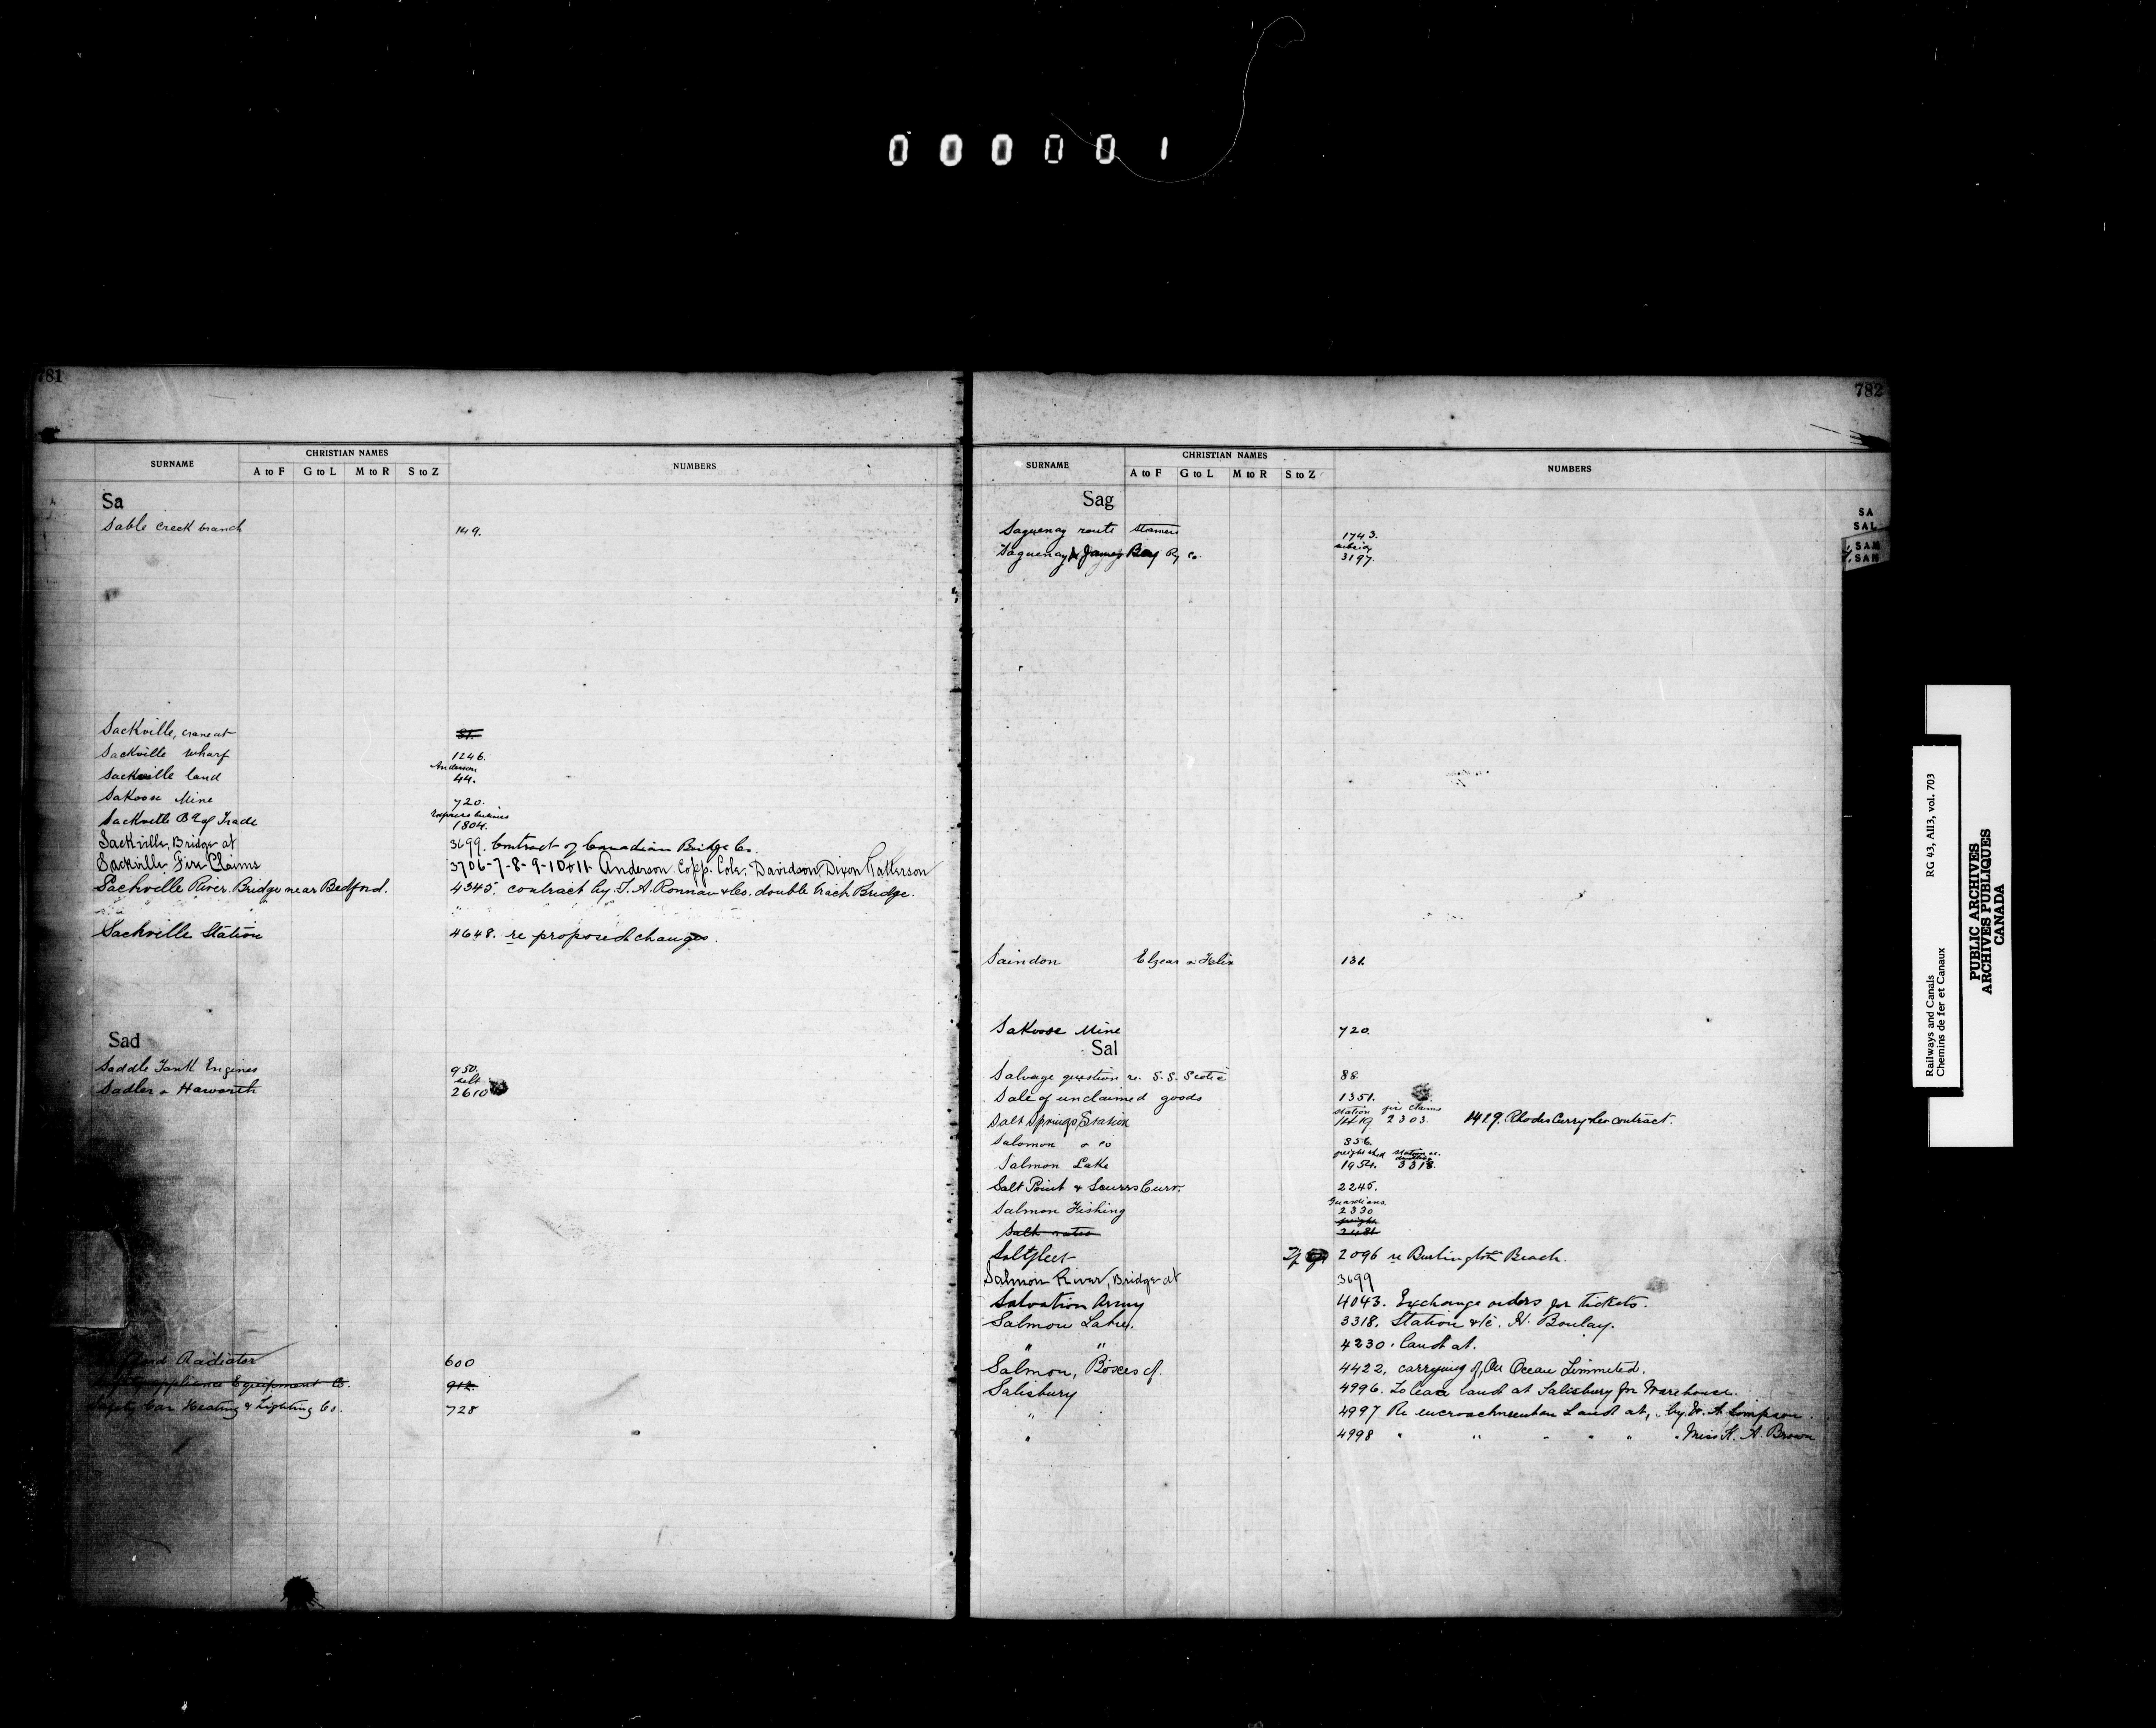 000001
781
SURNAME CHRISTIAN NAMES NUMBERS
A to F G to L M to R S to Z
Sa
Sable Creek branch 149.
Sackville, crane at 81.
Sackville wharf 1246.
Anderson
Sackville land 44.
Sakoose Mine 720.
Express business
Sackville Bd of Trade 1804.
Sackville, Bridge at 3699. Contract of Canadian Bridge Co.
Sackville Fire Claims 3706-7-8-9-10&11 Anderson. Copp. Cole. Davidson, Dixon, Patterson
Sackville River Bridge near Bedford. 4345. contract by T. A. Ronnan & Co. double track Bridge.
Sackville Station 4648. re proposed changes.
Sad
Saddle Tank Engines 950.
belt
Sadler & Haworth 2610
Radiator 600
Appliance Equipment Co. 912
Safety Car Heating & Lighting Co. 728
782
SURNAME CHRISTIAN NAMES NUMBERS
A to F G to L M to R S to Z
Sag
Saguenay route steamers 1743.
subsidy
Saguenay & James Bay Ry Co. 3197.
Saindon Elzear & Felix 131.
Sakoose Mine 720.
Sal
Salvage question re. S.S. Scotia 88.
Sale of unclaimed goods 1351.
station fire claims
Salt Springs Station 1419 2303. 1419. Rhodes Curry & Co contract.
Salomon & Co 856.
freight shed station ac.
Salmon Lake 1954. 3318.
Salt Point & Scurrs Curv. 2245.
Guardians
Salmon Fishing 2330
freight
Salt rates 2481
Saltfleet Tp of 2096 re Burlington Beach.
Salmon River, Bridge at 3699
Salvation Army 4043. Exchange orders for tickets.
Salmon Lake. 3318. Station &c. H. Boulay.
" " 4230. land at.
Salmon, Boxes of. 4422, carrying of, on Ocean Limmited.
Salisbury 4996. To lease land at Salisbury for Warehouse.
" 4997 Re encroachment on Land at, by W. A. Simpson.
" 4998 " " " " " " Miss K. A. Brown
SA
SAL
SAM
SAN
Railways and Canals RG 43, AII3, vol. 703
Chemins de fer et Canaux
PUBLIC ARCHIVES
ARCHIVES PUBLIQUES
CANADA